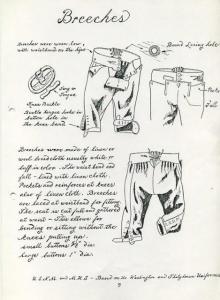 Breeches
Breeches were worn low
with waistband on the hips
Band Lacing hole
Tongue
Knee Buckle
Buckle tongue hooks in
button hole in
the knee band
Fall
Breeches were made of linen or
wool broadcloth usually white or
buff in color. The waist band and
fall - lined with linen cloth.
Pockets and reinforces at knees
also of linen cloth. Breeches
are laced at waistband for fitting.
The seat is cut full and gathered
at waist - This allows for
bending or sitting without the
knees pulling up.
small buttons ½" dia.
large buttons 1" dia.
U.S.N.M. and M.H.S. - Based on the Washington and Uniforms
9